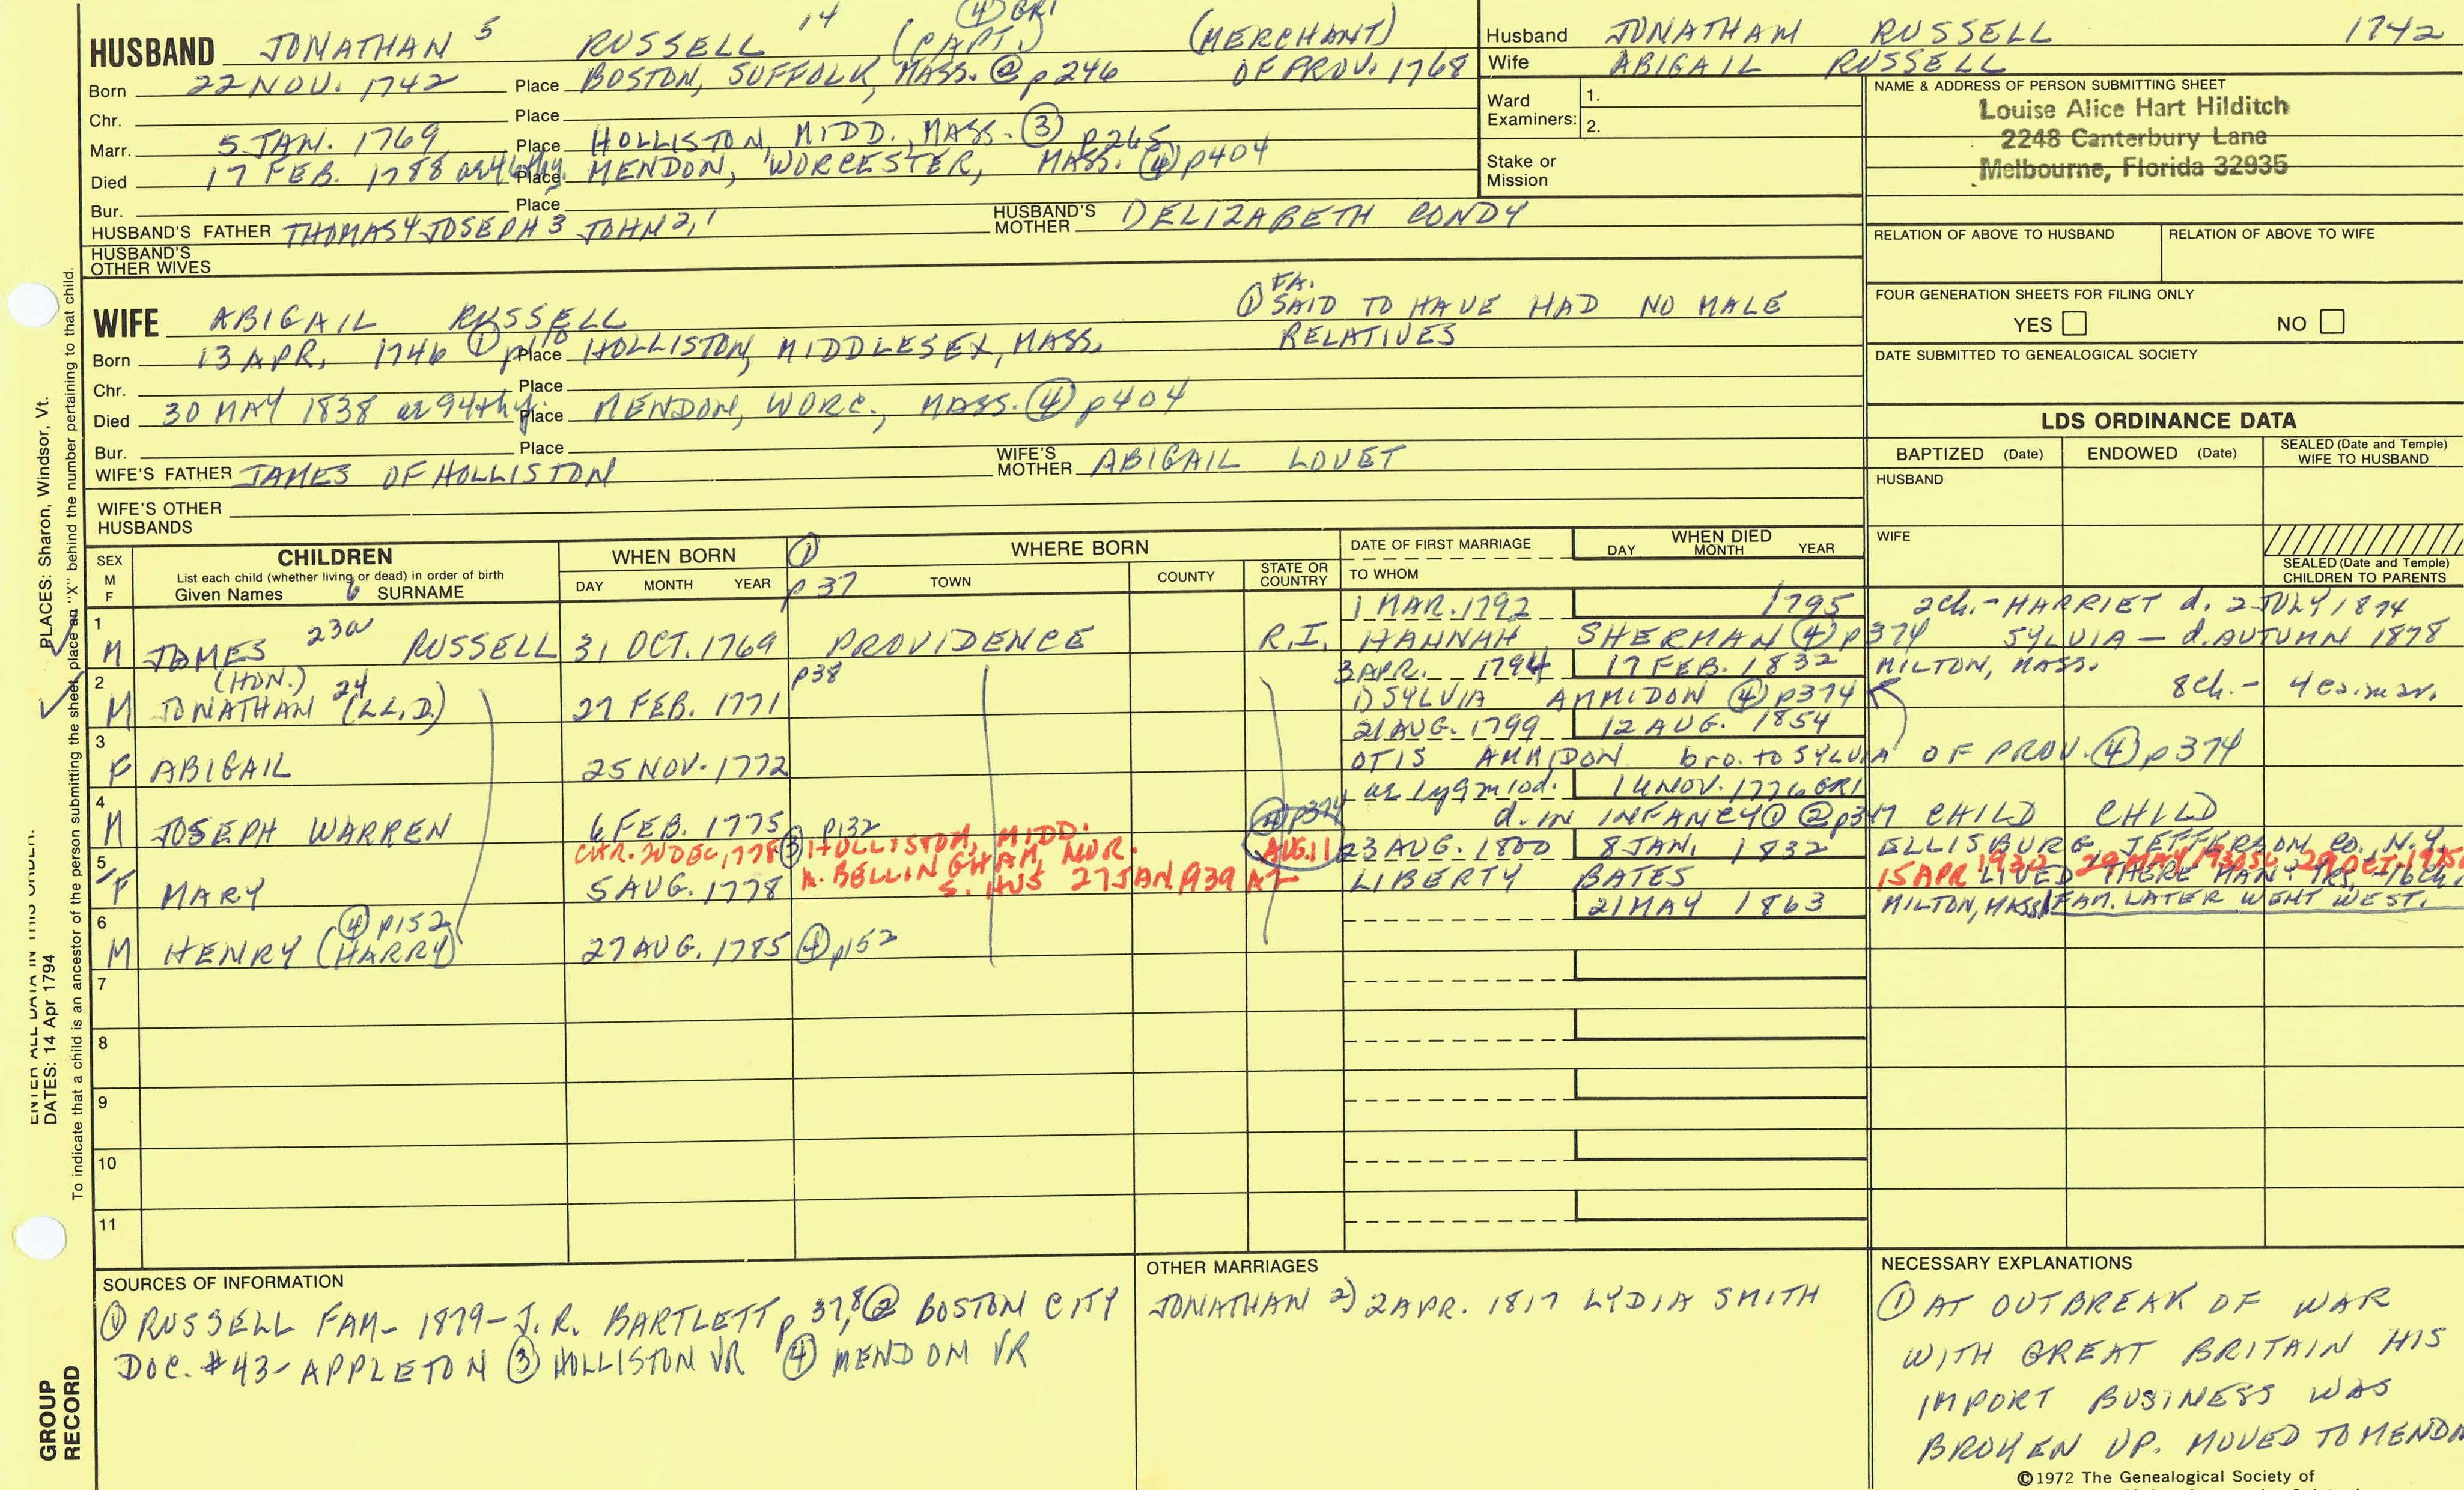 ④ GRI
HUSBAND JONATHAN 5 RUSSELL 14 (CAPT.) (MERCHANT)
Born 22 NOV. 1742 Place BOSTON, SUFFOLK, MASS. @ p246 OF PROV. 1768
Chr. Place
Marr. 5 JAN. 1769 Place HOLLISTON, MIDD., MASS. ③ p265
Died 17 FEB. 1788 Place MENDON, WORCESTER, MASS. ④ p404
Bur. Place
HUSBAND'S FATHER THOMAS 4 JOSEPH 3 JOHN 2,1 HUSBAND'S MOTHER ELIZABETH CONDY
HUSBAND'S OTHER WIVES
Husband JONATHAN RUSSELL 1742
Wife ABIGAIL RUSSELL
Ward Examiners: 1.
2.
Stake or Mission
NAME & ADDRESS OF PERSON SUBMITTING SHEET
Louise Alice Hart Hilditch
2248 Canterbury Lane
Melbourne, Florida 32935
RELATION OF ABOVE TO HUSBAND RELATION OF ABOVE TO WIFE
FOUR GENERATION SHEETS FOR FILING ONLY
YES NO
DATE SUBMITTED TO GENEALOGICAL SOCIETY
WIFE ABIGAIL RUSSELL
① FA. SAID TO HAVE HAD NO MALE
RELATIVES
Born 13 APR. 1746 ① p110 Place HOLLISTON, MIDDLESEX, MASS.
Chr. Place
Died 30 MAY 1838 ae 94thy. Place MENDON, WORC., MASS. ④ p404
Bur. Place
WIFE'S FATHER JAMES OF HOLLISTON WIFE'S MOTHER ABIGAIL LOVET
WIFE'S OTHER HUSBANDS
LDS ORDINANCE DATA
BAPTIZED (Date) ENDOWED (Date) SEALED (Date and Temple) WIFE TO HUSBAND
HUSBAND
WIFE
SEALED (Date and Temple) CHILDREN TO PARENTS
SEX M F CHILDREN List each child (whether living or dead) in order of birth Given Names 6 SURNAME
WHEN BORN DAY MONTH YEAR
① p37 WHERE BORN TOWN COUNTY STATE OR COUNTRY
DATE OF FIRST MARRIAGE TO WHOM
WHEN DIED DAY MONTH YEAR
1 MAR. 1792 1795 2ch.- HARRIET d. 2 JULY 1874
1 M JAMES 23a RUSSELL 31 OCT. 1769 PROVIDENCE R.I. HANNAH SHERMAN ④ p374 SYLVIA - d. AUTUMN 1878
(HON.) p38 3 APR. 1794 17 FEB. 1832 MILTON, MASS.
2 M JONATHAN 24 (LL.D.) 27 FEB. 1771 1) SYLVIA AMMIDON ④ p374 8ch.-
21 AUG. 1799 12 AUG. 1854
3 F ABIGAIL 25 NOV. 1772 OTIS AMMIDON bro. to SYLVIA OF PROV. ④ p374
ae 1y9m10d. 14 NOV. 1776 GRI
4 M JOSEPH WARREN 6 FEB. 1775 p132 ④ p374 d. IN INFANCY ① ② p347 CHILD CHILD
CHR. 20 DEC, 1778 ③ HOLLISTON, MIDD. AUG. 11 23 AUG. 1800 8 JAN. 1832 ELLISBURG, JEFFERSON CO., N.Y.
BELLINGHAM, NOR.
15 APR 1932 29 OCT. 1975
5 F MARY 5 AUG. 1778 S. HUS 27 JAN. 1939 AZ LIBERTY BATES LIVED THERE MANY YRS.
④ p152 21 MAY 1863 MILTON, MASS. FAM. LATER WENT WEST.
6 M HENRY (HARRY) 27 AUG. 1785 ④ p152
7
8
9
10
11
SOURCES OF INFORMATION
① RUSSELL FAM- 1879- J.R. BARTLETT p 37,8 ② BOSTON CITY
DOC. #43- APPLETON ③ HOLLISTON VR ④ MENDON VR
OTHER MARRIAGES
JONATHAN 2) 2 APR. 1817 LYDIA SMITH
NECESSARY EXPLANATIONS
① AT OUTBREAK OF WAR
WITH GREAT BRITAIN HIS
IMPORT BUSINESS WAS
BROKEN UP. MOVED TO MENDON
©1972 The Genealogical Society of
ENTER ALL DATA IN THIS ORDER:
PLACES: Sharon, Windsor, Vt.
DATES: 14 Apr 1794
To indicate that a child is an ancestor of the person submitting the sheet, place an "X" behind the number pertaining to that child.
GROUP RECORD